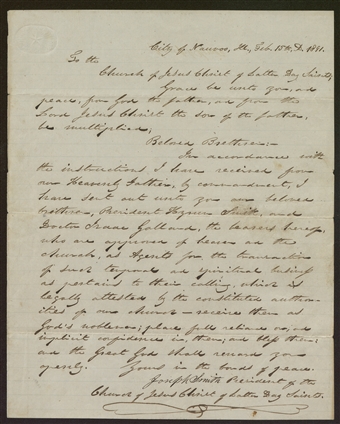 City of Nauvoo, Ill, Feb. 15th, A.D. 1841.
To the
Church of Jesus Christ of Latter Day Saints,
Grace be unto you, and
peace, from God the father, and from the
Lord Jesus Christ the son of the father,
be multiplied;
Beloved Brethren:-
In accordance with
the instructions, I have received from
our Heavenly Father, by commandment, I
have sent out unto you our beloved
brethren, President Hyrum Smith, and
Doctor Isaac Galland, the bearers hereof,
who are approved of heaven and the
church, as Agents for the transaction
of such temporal and spiritual business
as pertains to their calling, which is
legally attested by the constituted author-
ities of our church — receive them as
God's noblemen; place full reliance on, and
implicit confidence in, them; and bless them;
and the Great God shall reward you
openly. Yours in the bonds of peace.
Joseph Smith President of the
Church of Jesus Christ of Latter Day Saints.